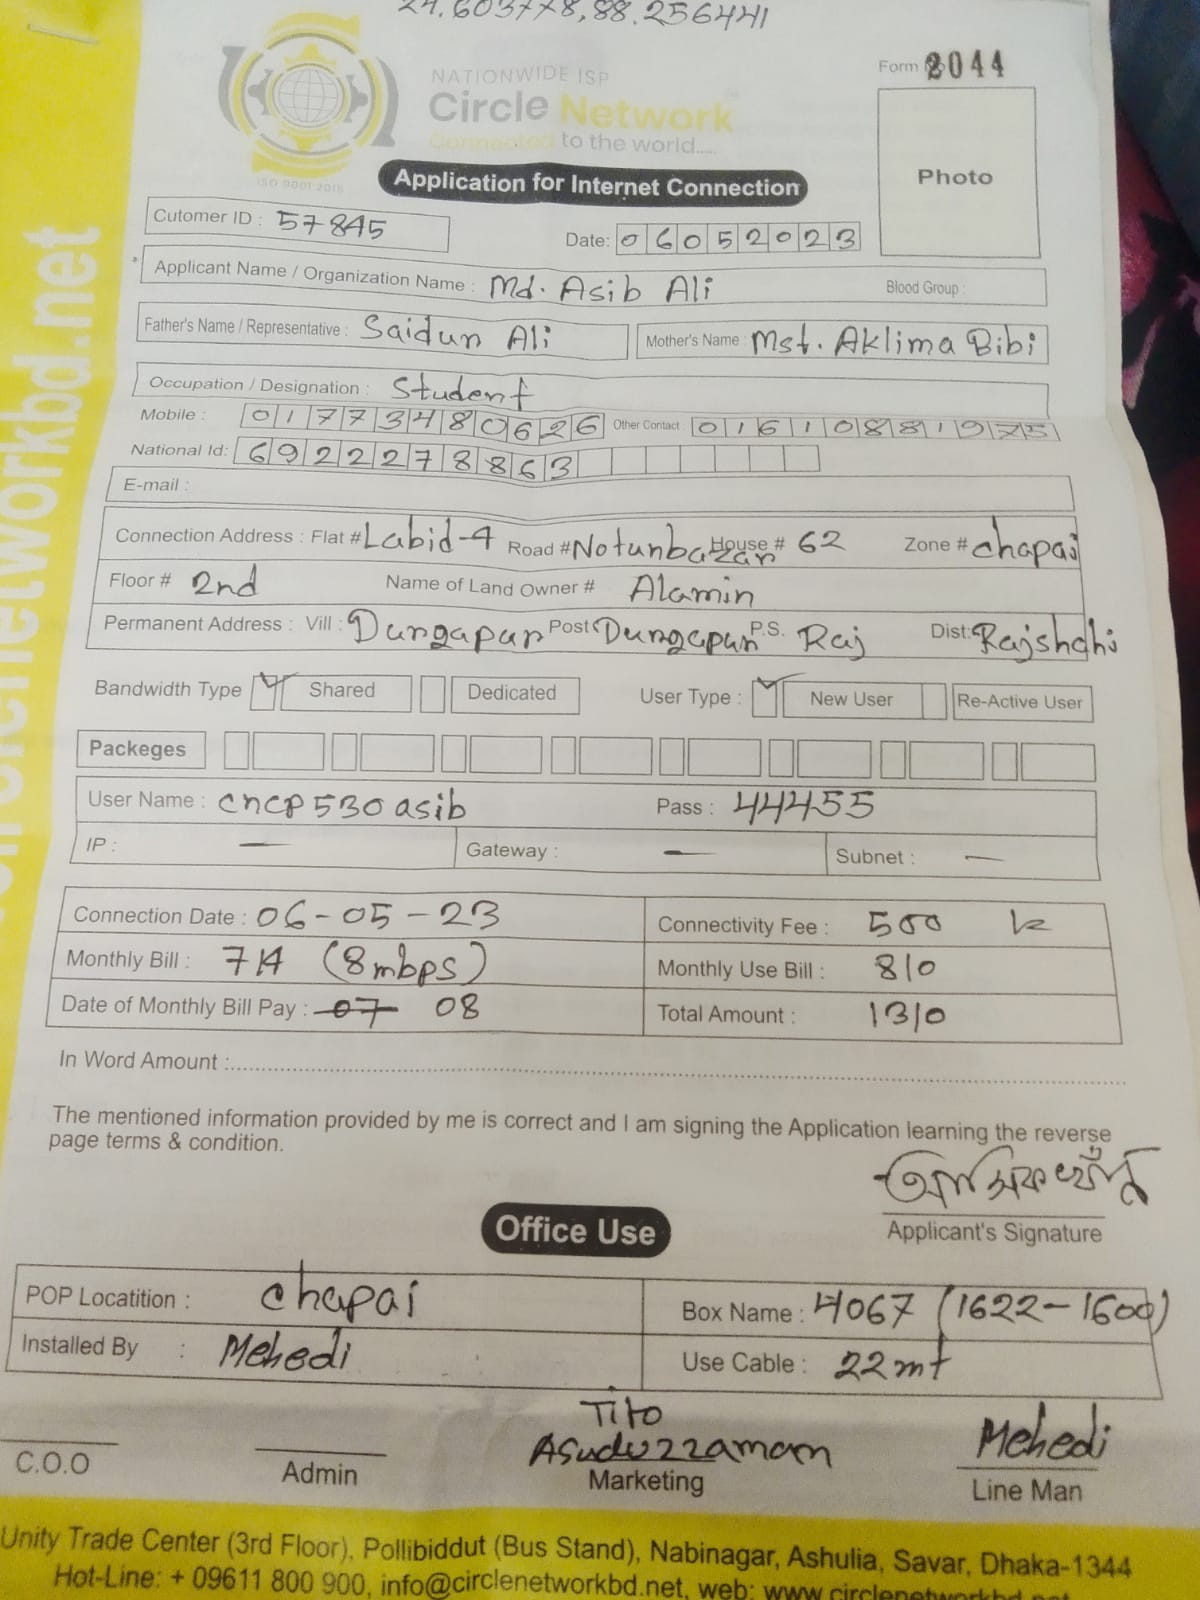 24.603778,88.256441
NATIONWIDE ISP
Form 2044
Circle Network
Connected to the world.....
ISO 9001:2015
Photo
Application for Internet Connection
Cutomer ID : 57845
Date: 06052023
Applicant Name / Organization Name : Md. Asib Ali Blood Group :
Father's Name / Representative : Saidun Ali Mother's Name : Mst. Aklima Bibi
Occupation / Designation : Student
Mobile : 01773480626 Other Contact 01610881975
National Id: 6922278863
E-mail :
Connection Address : Flat # Labid-4 Road # Notunbazar House # 62 Zone # chapai
Floor # 2nd Name of Land Owner # Alamin
Permanent Address : Vill : Durgapur Post Durgapur P.S. Raj Dist: Rajshahi
Bandwidth Type Shared Dedicated User Type : New User Re-Active User
Packeges
User Name : cncp530asib Pass : 44455
IP : — Gateway : — Subnet : —
Connection Date : 06-05-23 Connectivity Fee : 500
Monthly Bill : 714 (8mbps) Monthly Use Bill : 810
Date of Monthly Bill Pay : 07 08 Total Amount : 1310
In Word Amount :
The mentioned information provided by me is correct and I am signing the Application learning the reverse
page terms & condition.
Applicant's Signature
Office Use
POP Locatition : chapai Box Name : 4067 (1622-1600)
Installed By : Mehedi Use Cable : 22mt
Tito
Asaduzzaman Mehedi
C.O.O Admin Marketing Line Man
Unity Trade Center (3rd Floor), Pollibiddut (Bus Stand), Nabinagar, Ashulia, Savar, Dhaka-1344
Hot-Line: + 09611 800 900, info@circlenetworkbd.net, web: www.circlenetworkbd.net
circlenetworkbd.net